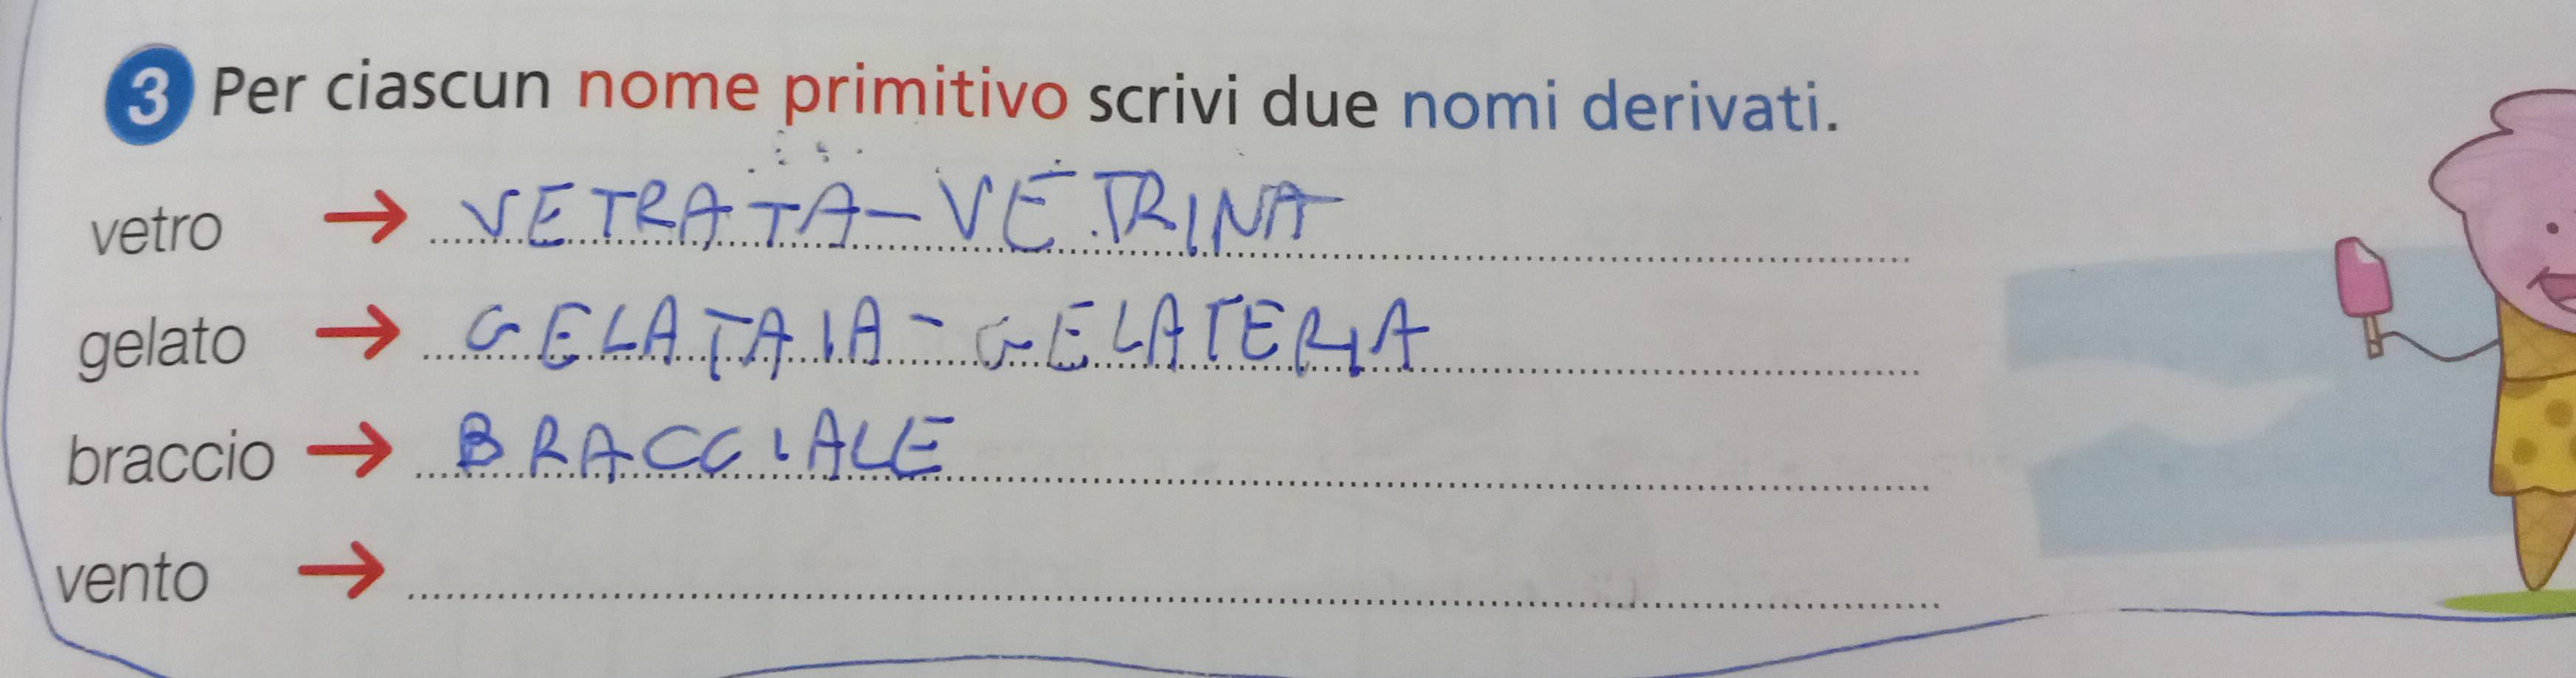 3 Per ciascun nome primitivo scrivi due nomi derivati.
vetro → VETRATA - VETRINA
gelato → GELATAIA - GELATERIA
braccio → BRACCIALE
vento →